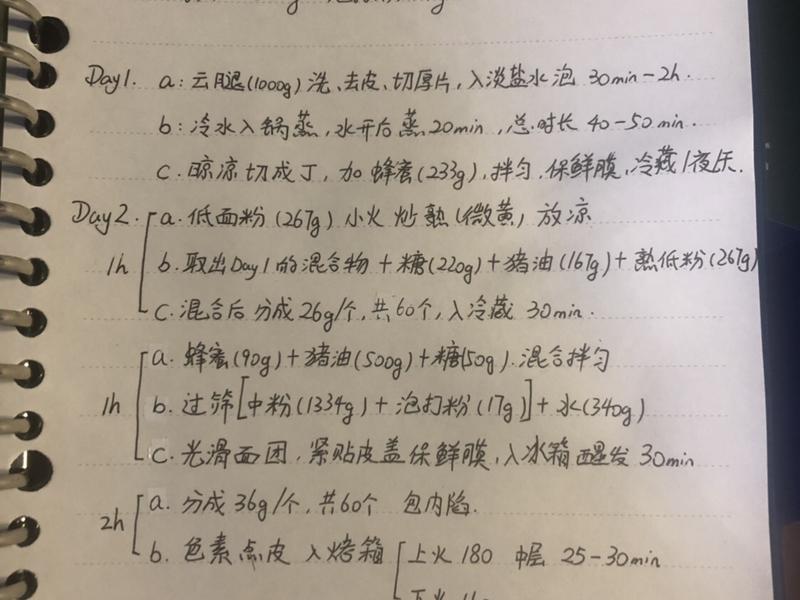 Day1. a:云腿(1000g)洗、去皮、切厚片,入淡盐水泡 30min-2h.
b:冷水入锅蒸,水开后蒸20min,总时长 40-50min.
c.晾凉切成丁,加蜂蜜(233g),拌匀.保鲜膜,冷藏1夜/天.
Day2. a.低面粉(267g)小火炒熟(微黄)放凉
1h b.取出Day1的混合物+糖(220g)+猪油(167g)+熟低粉(267g)
c.混合后分成26g/个,共60个,入冷藏 30min.
a.蜂蜜(90g)+猪油(500g)+糖(50g).混合拌匀
1h b.过筛[中粉(1334g)+泡打粉(17g)]+水(340g)
c.光滑面团,紧贴皮盖保鲜膜,入冰箱醒发 30min
2h a.分成36g/个,共60个 包内陷.
b.色素点皮 入焙箱 上火 180 中层 25-30min
下火